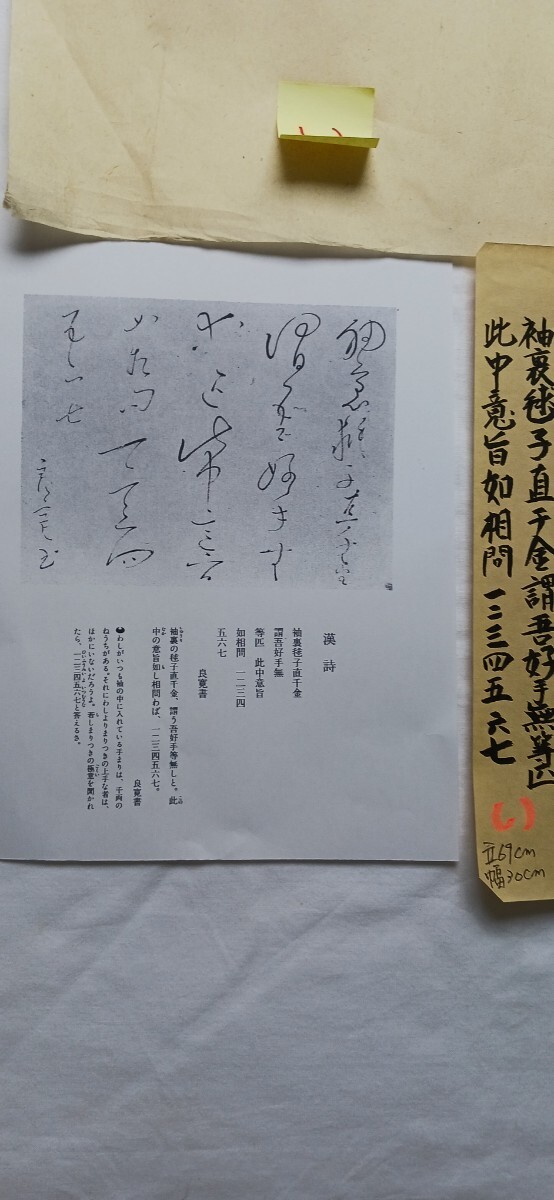 袖裏毬子直千金謂吾好手無等匹
此中意旨如相問 一二三四五六七
い
丈69cm
幅30cm
い
袖裏毬子直千金
謂吾好手無
等匹 此中意旨
如相問 一二三四
五六七
良寛書
漢詩
袖裏毬子直千金
謂吾好手無
等匹 此中意旨
如相問 一二三四
五六七
良寛書
袖裏の毬子直千金、謂う吾好手等無しと。此
中の意旨如し相問わば、一二三四五六七。
良寛書
わしがいつも袖の中に入れている手まりは、千両の
ねうちがある。それにわしよりまりつきの上手な者は、
ほかにいないだろうよ。若しまりつきの極意を聞かれ
たら、一二三四五六七と答えるさ。